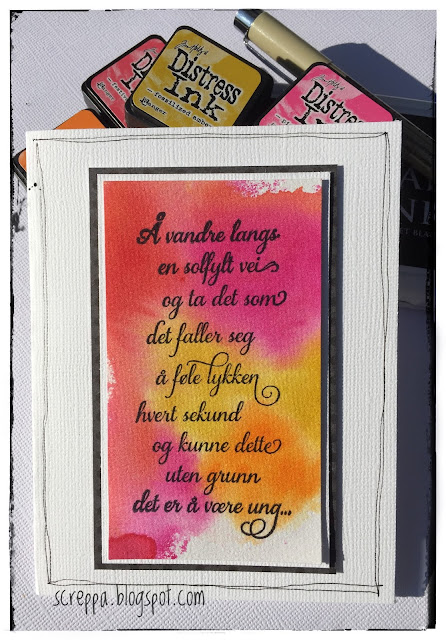 Tim Holtz
Distress
Ink
Ranger
fossilized amber
Distress
Ink
Å vandre langs
en solfylt vei
og ta det som
det faller seg
å føle lykken
hvert sekund
og kunne dette
uten grunn
det er å være ung...
screppa.blogspot.com